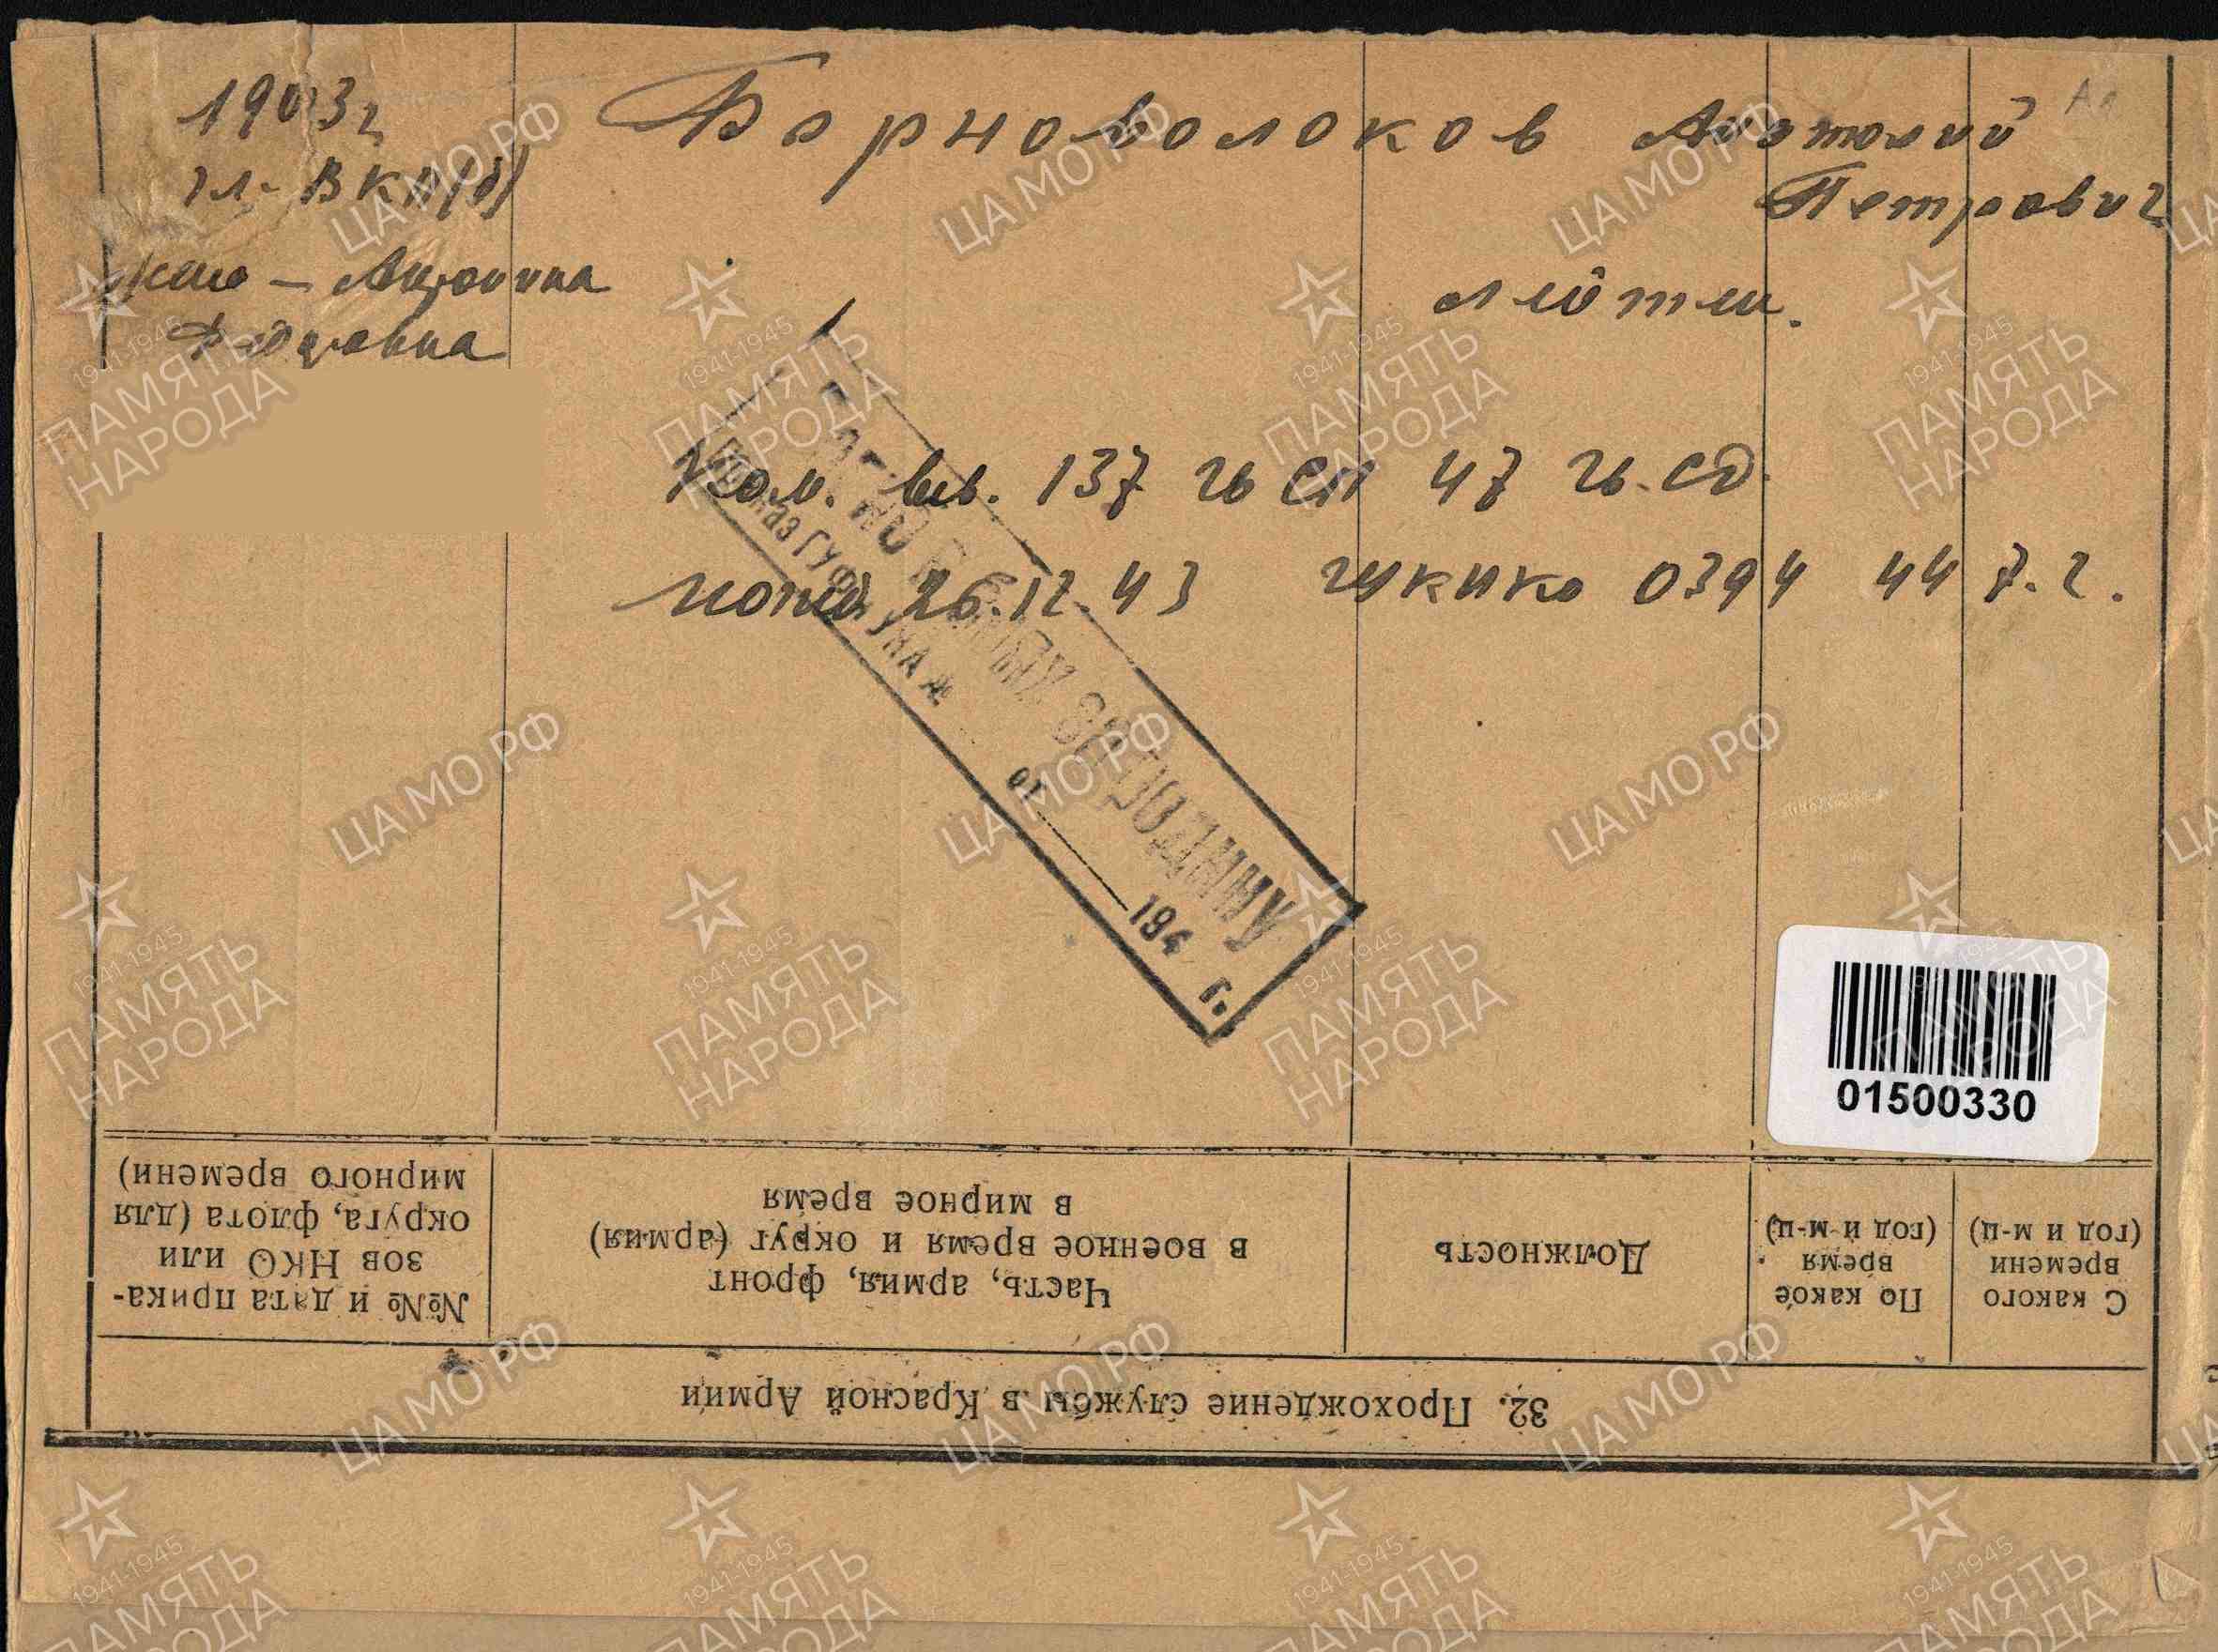 1903 г
Борноволоков Анатолий
чл. ВКП(б)
Петрович
жена – Антонина
лейтен.
Федоровна
Ком. вв. 137 гв сп 47 гв. сд.
погиб 26.12.43 гукнко 0394 44 г.
Приказ ГУФ УКА №
от 194 г.
01500330
32. Прохождение службы в Красной Армии
С какого времени (год и м-ц)
По какое время (год и м-ц)
Должность
Часть, армия, фронт
в военное время и округ (армия)
в мирное время
№№ и дата прика-
зов НКО или
округа, флота (для
мирного времени)
ЦАМО РФ
1941-1945
ПАМЯТЬ
НАРОДА